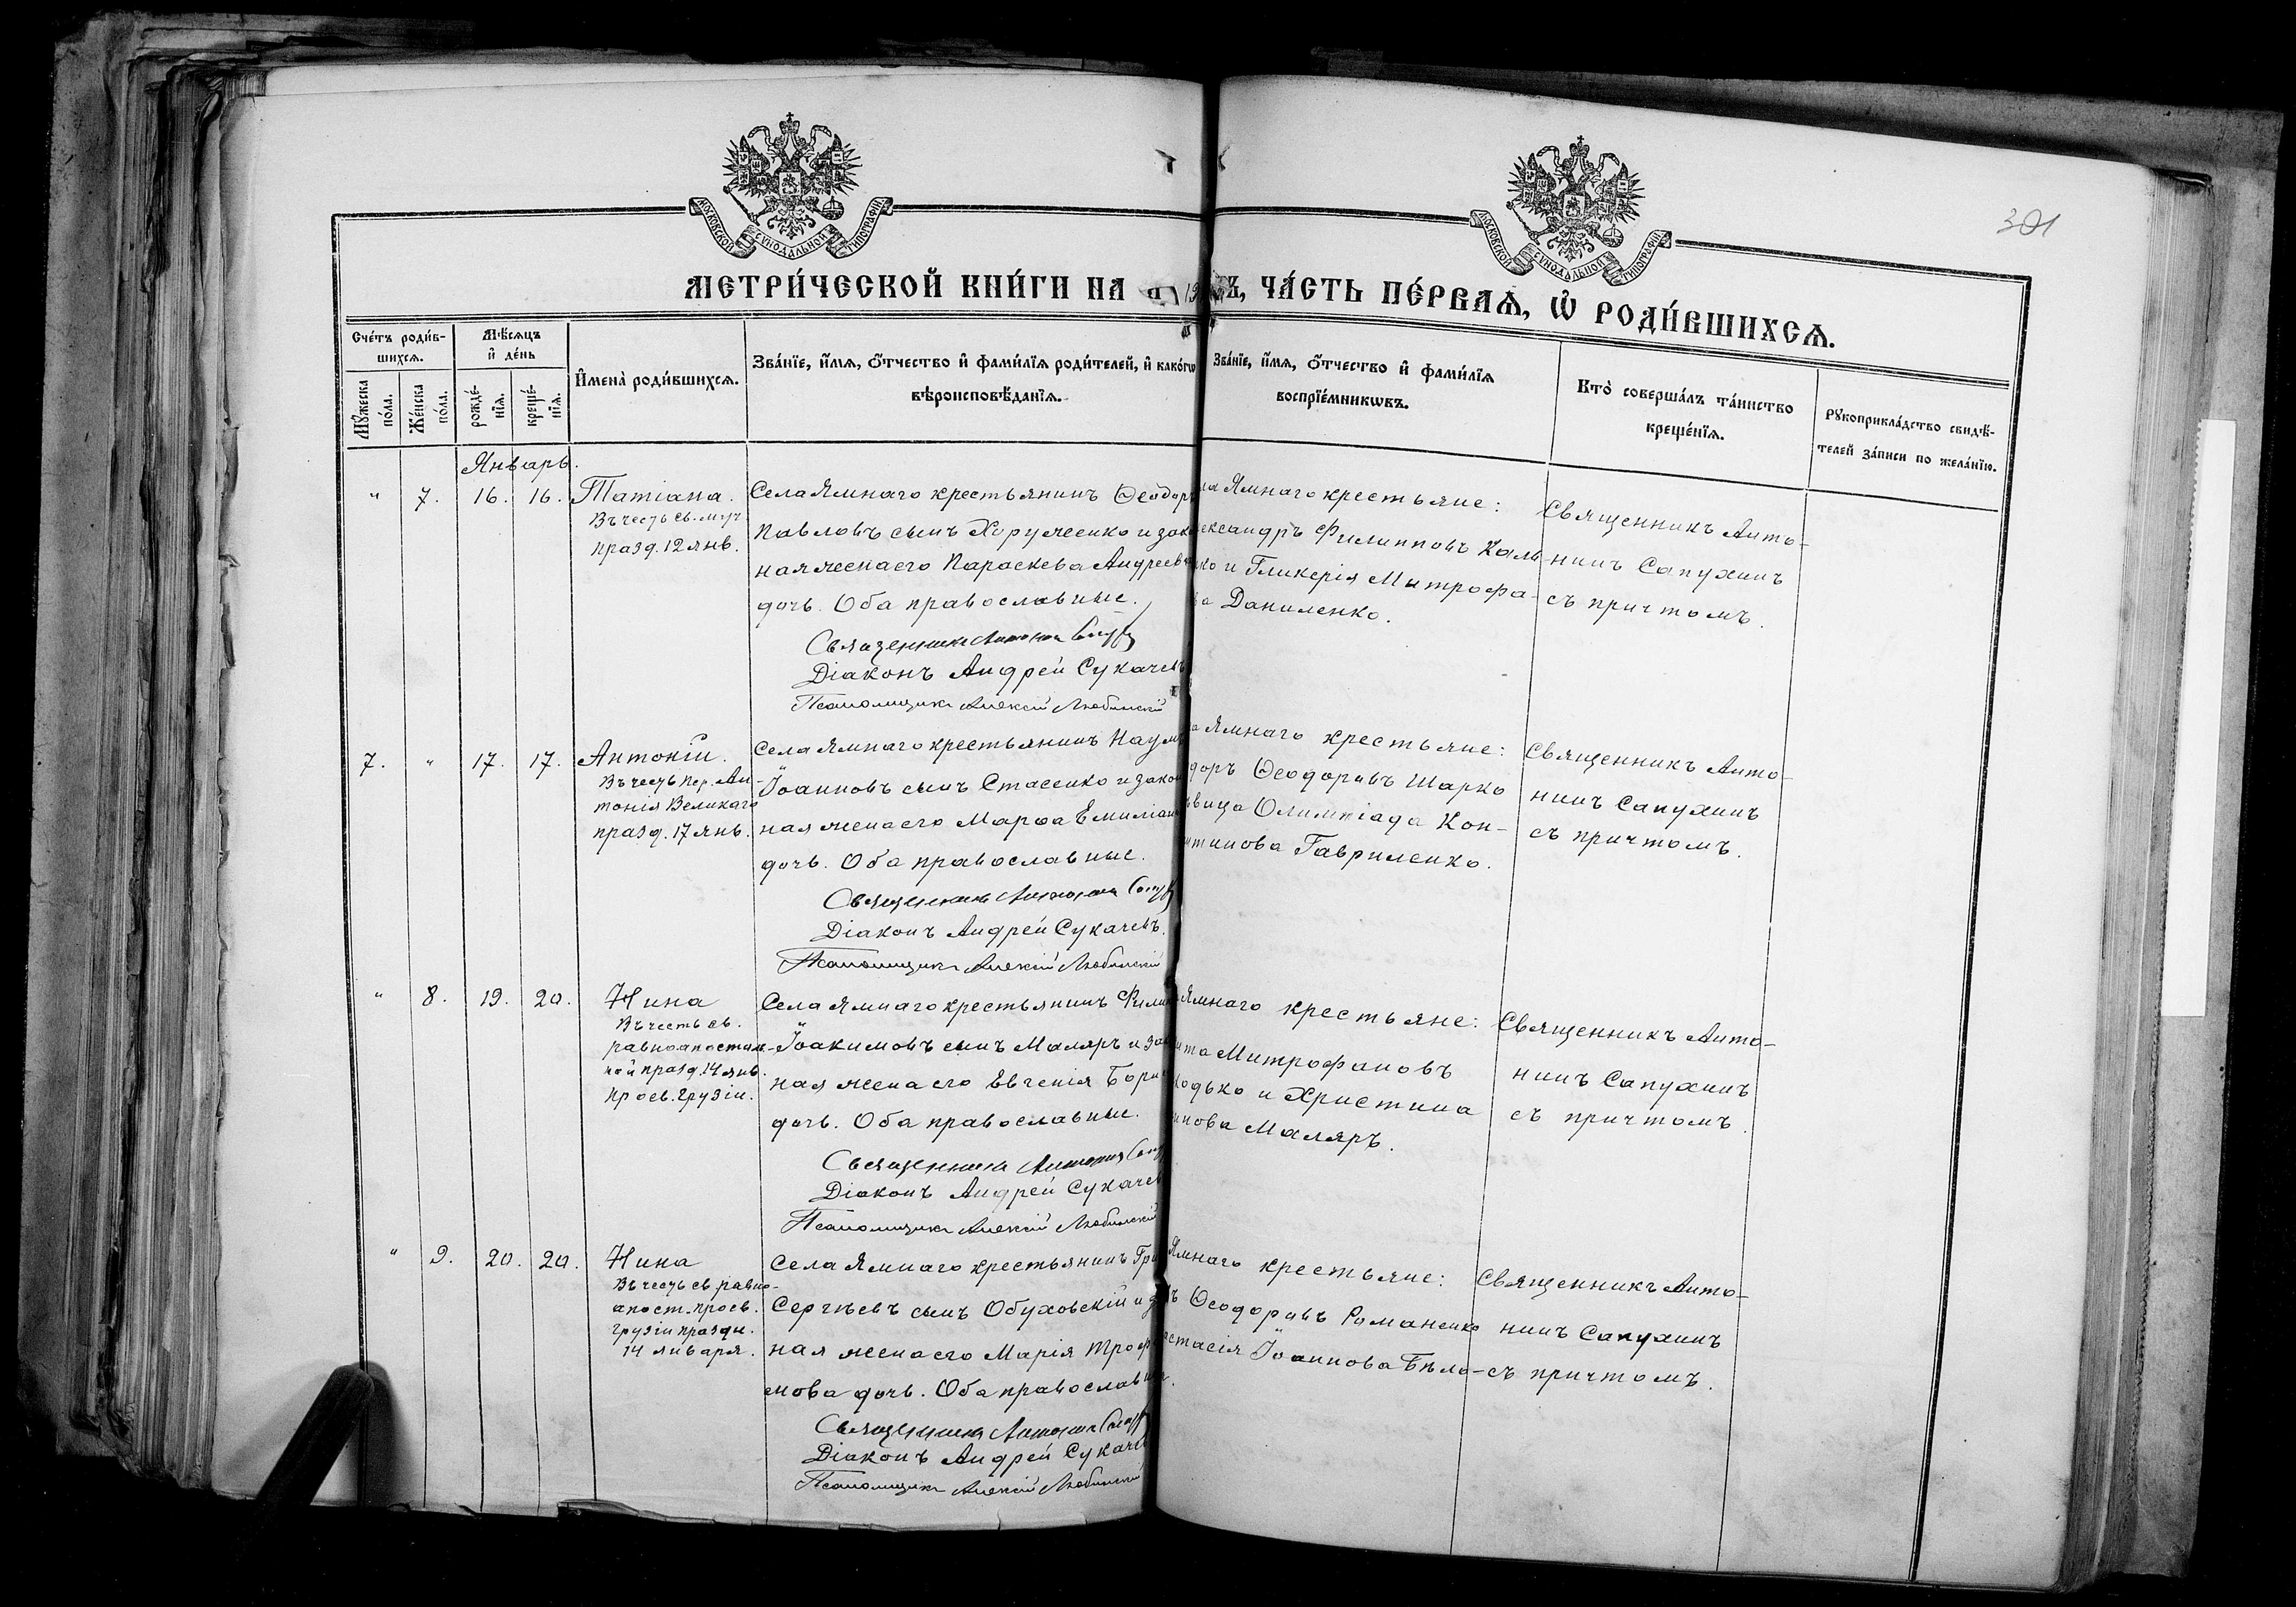 301
МОСКОВСКОЙ СУНОДАЛЬНОЙ ТИПОГРАФІИ
МОСКОВСКОЙ СУНОДАЛЬНОЙ ТИПОГРАФІИ
МЕТРИ́ЧЕСКОЙ КНИ́ГИ НА 19 Ъ, ЧА́СТЬ ПЕ́РВАѦ, Ѡ҆ РОДИ́ВШИХСѦ.
Сче́тъ роди́в-
шихсѧ.
Мѣ́сѧцъ
и҆ де́нь
Мꙋ́жеска
по́ла.
Же́нска
по́ла.
рожде́-
нїѧ.
креще́-
нїѧ.
И҆мена̀ роди́вшихсѧ.
Зва́нїе, и҆́мѧ, ѻ҆́тчество и҆ фами́лїѧ роди́телей, и҆ како́гѡ
вѣроисповѣ́данїѧ.
Зва́нїе, и҆́мѧ, ѻ҆́тчество и҆ фами́лїѧ
воспрїе́мникѡвъ.
Кто̀ соверша́лъ та́инство
креще́нїѧ.
Рꙋкоприкла́дство свидѣ́-
телей за́писи по жела́нїю.
Январь.
" 7. 16. 16. Татіана.
Въ честь св. муч.
празд. 12 янв.
Села Ямнаго крестьянинъ Ѳеодоръ
Павловъ сынъ Хоружеко и зако
ная жена его Параскева Андреева
дочь. Оба православные.
Священникъ Антонин
Діаконъ Андрей Сукачевъ
Псаломщикъ Алексій Любинскій
ла Ямнаго крестьяне:
ександръ Филипповъ Каль-
ко и Гликерія Митрофа-
ва Даниленко.
Священникъ Анто-
нинъ Сапухинъ
съ причтомъ.
7. " 17. 17. Антоній.
Въ честь пр. Ан-
тонія Великаго
празд. 17 янв.
Села Ямнаго крестьянинъ Наумъ
Іоанновъ сынъ Стасенко и закон
ная жена его Марѳа Емиліан
дочь. Оба православные.
Священникъ Антонин
Діаконъ Андрей Сукачевъ.
Псаломщикъ Алексій Любинскій
а Ямнаго крестьяне:
доръ Ѳеодоровъ Шарко
вица Олимпіада Кон-
тинова Гавриленко.
Священникъ Анто-
нинъ Сапухинъ
съ причтомъ.
" 8. 19. 20. Нина
Въ честь св.
равноапостоль-
ной празд. 14 янв.
просв. Грузіи.
Села Ямнаго крестьянинъ Филип
Іоакимовъ сынъ Маляръ и зак
ная жена его Евгенія Бори
дочь. Оба православные.
Священникъ Антонин
Діаконъ Андрей Сукачев
Псаломщикъ Алексій Любинскій
Ямнаго крестьяне:
ита Митрофановъ
одько и Христина
нова Маляръ.
Священникъ Анто-
нинъ Сапухинъ
съ причтомъ.
" 9. 20. 20. Нина
Въ честь св. равно-
апост. просв.
Грузіи праздн.
14 января.
Села Ямнаго крестьянинъ Гри
Сергѣевъ сынъ Обуховскій и з
ная жена его Марія Трофи
мова дочь. Оба православн
Священникъ Антонин
Діаконъ Андрей Сукачев
Псаломщикъ Алексій Любинскій
Ямнаго крестьяне:
ъ Ѳеодоровъ Романенко
стасія Іоаннова Бѣло-
Священникъ Анто-
нинъ Сапухинъ
съ причтомъ.